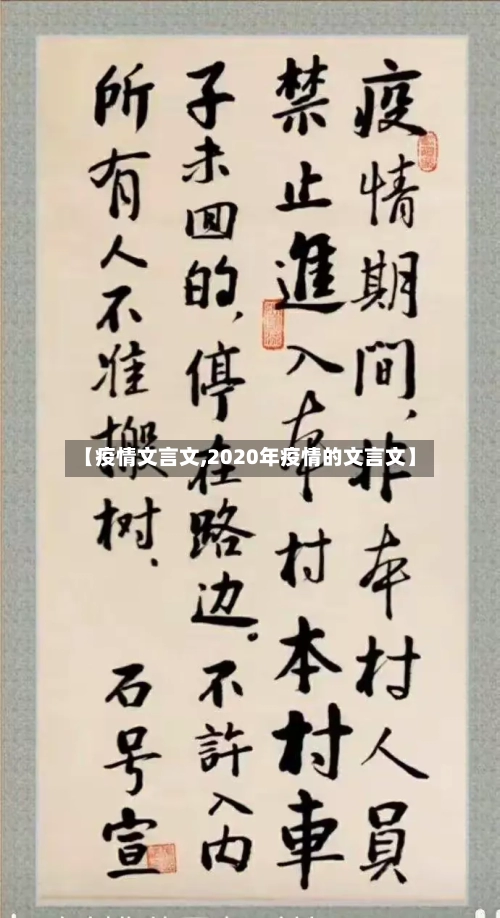 疫情期間，非本村人員
禁止進入本村本村車
子未回的，停在路边。不許入内
所有人不准搬树．
石号宣
【疫情文言文,2020年疫情的文言文】